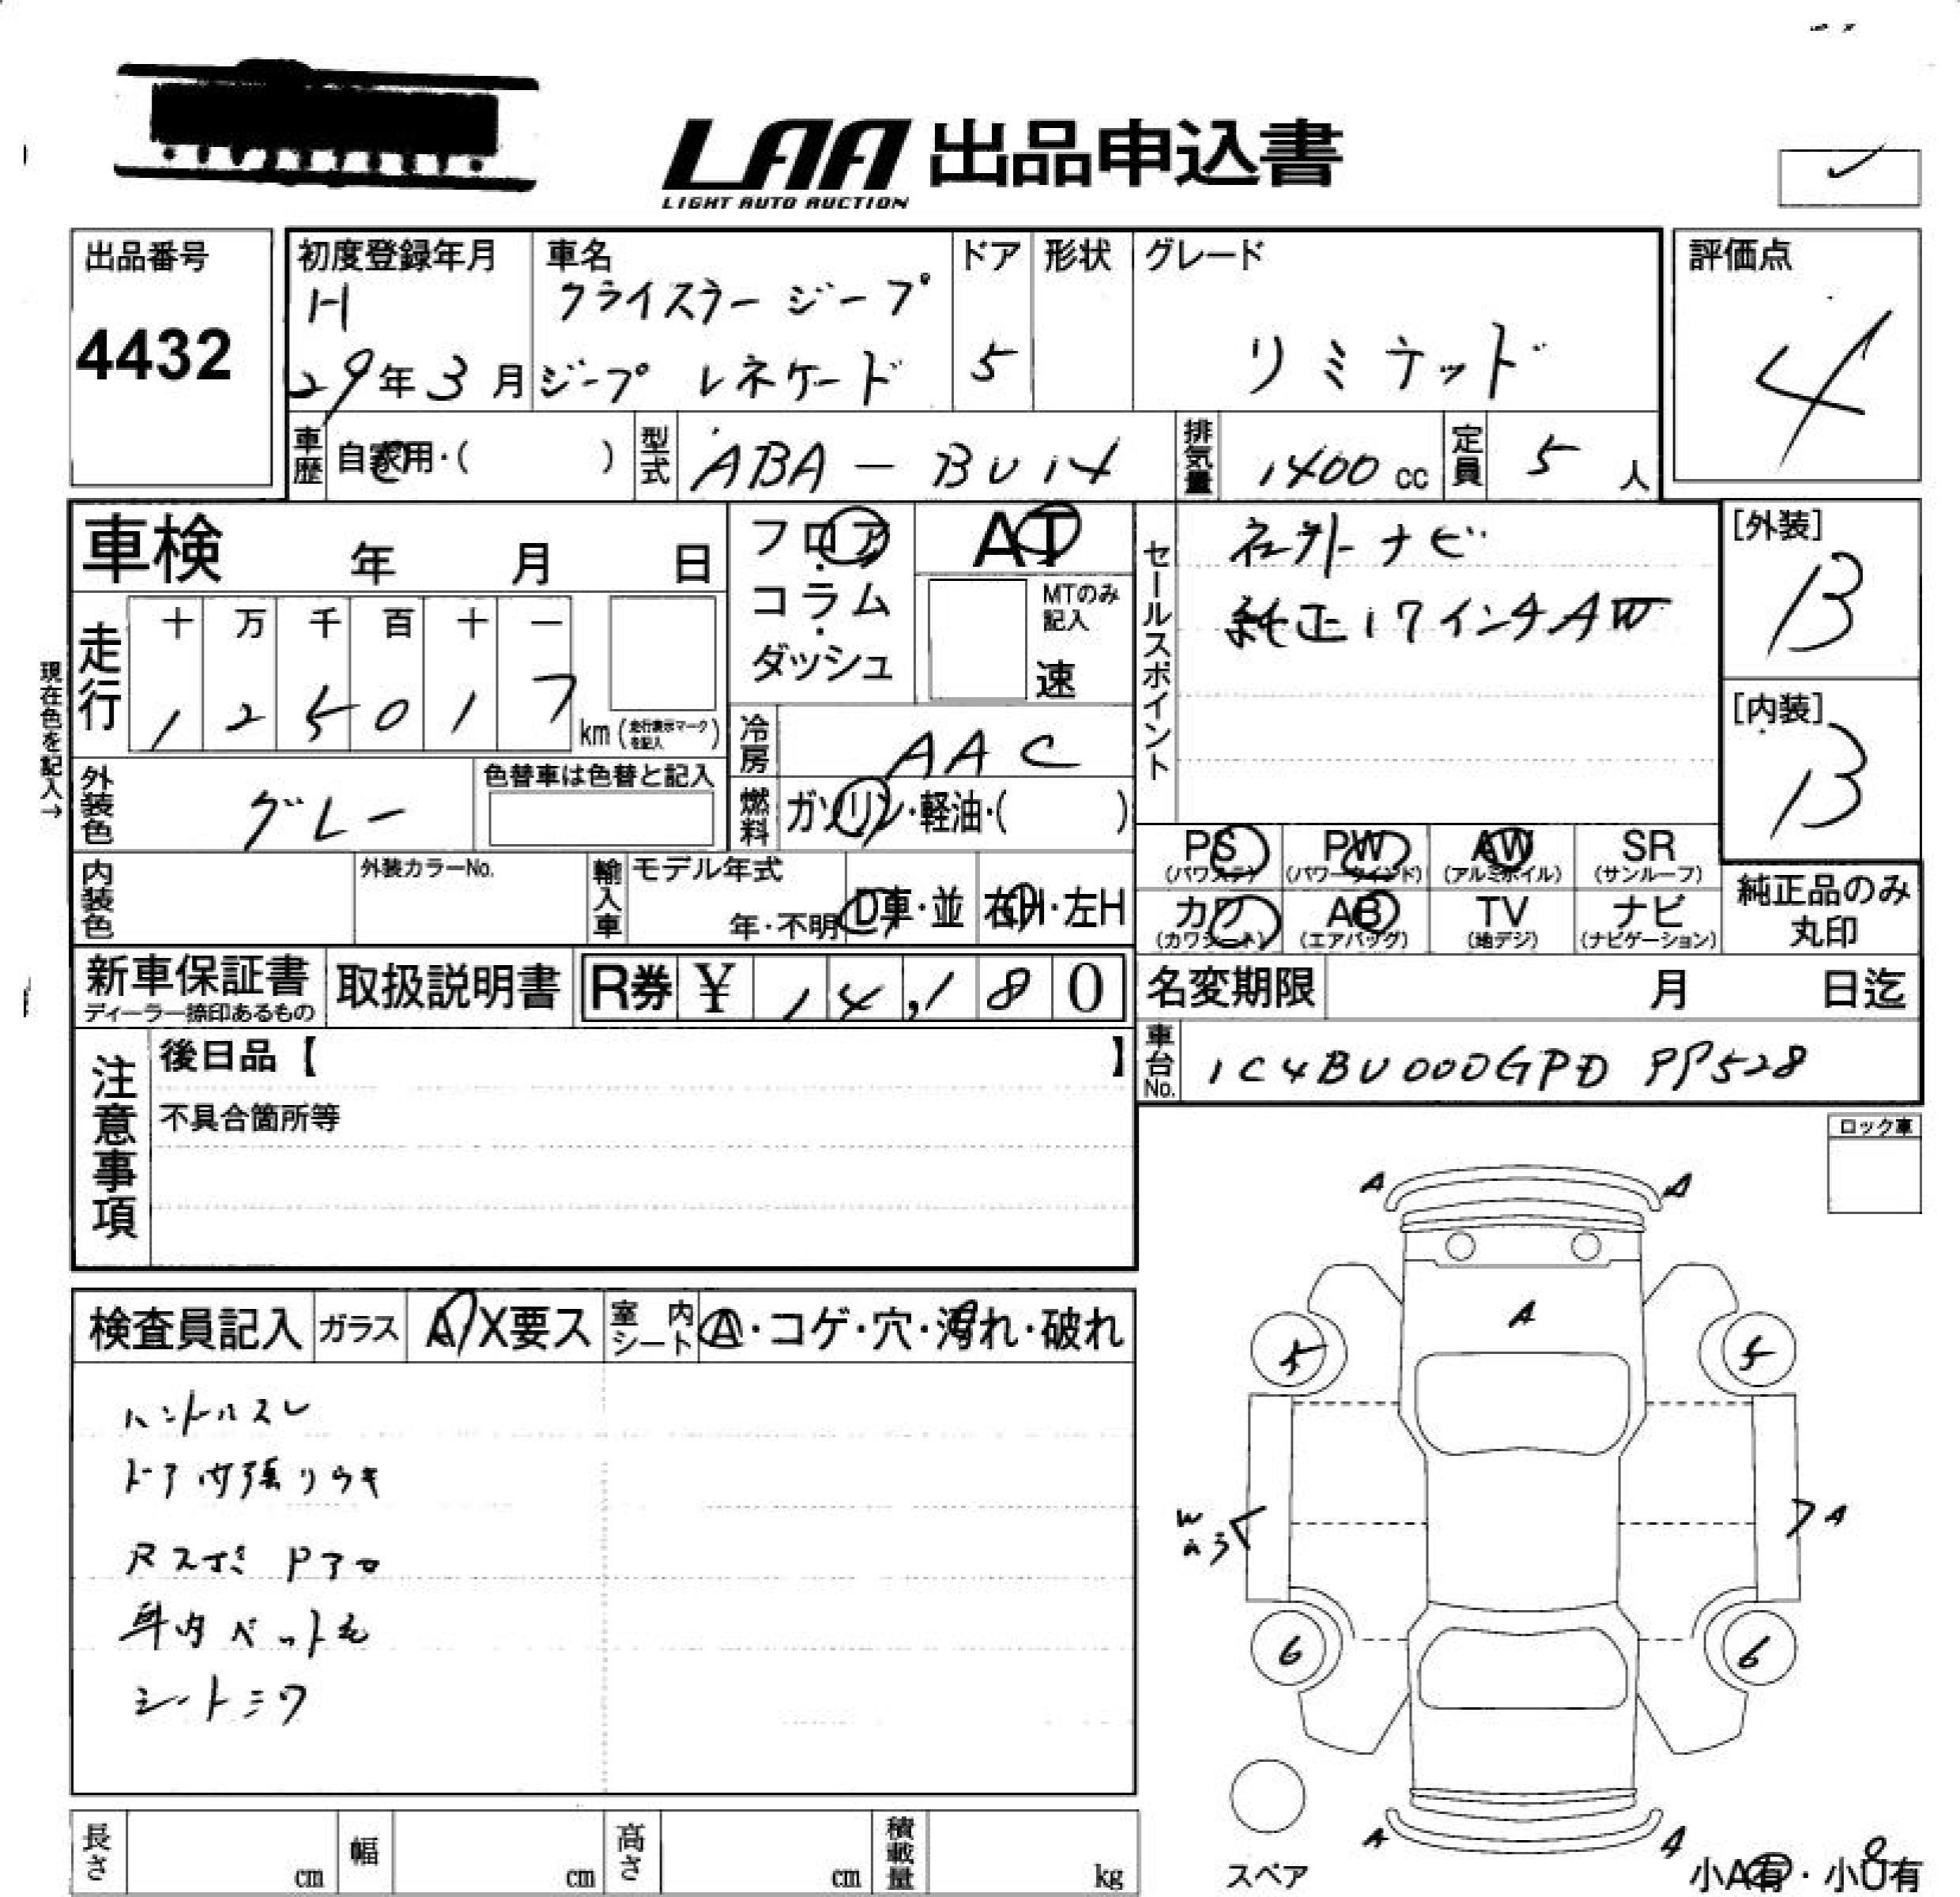 LAA 出品申込書
LIGHT AUTO AUCTION
出品番号
4432
初度登録年月
H
29年3月
車名
クライスラージープ
ジープ レネゲード
ドア
5
形状
グレード
リミテッド
評価点
4
車歴 自家用・( )
型式 ABA-BU14
排気量 1400 cc
定員 5 人
車検 年 月 日
現在色を記入→
走行
十 万 千 百 十 一
1 2 5 0 1 7
km (走行表示マークを記入)
フロア・コラム・ダッシュ
AT
MTのみ記入
速
冷房 AAC
燃料 ガソリン・軽油・( )
セールスポイント
社外ナビ
純正17インチAW
[外装]
B
[内装]
B
外装色 グレー
色替車は色替と記入
内装色
外装カラーNo.
輸入車
モデル年式
年・不明
D車・並
右H・左H
PS
(パワステ)
PW
(パワーウインド)
AW
(アルミホイル)
SR
(サンルーフ)
カワ
(カワシート)
AB
(エアバッグ)
TV
(地デジ)
ナビ
(ナビゲーション)
純正品のみ
丸印
新車保証書
ディーラー捺印あるもの
取扱説明書
R券 ¥ 14,180
名変期限 月 日迄
車台No. 1C4BU000GPD PP528
注意事項
後日品【 】
不具合箇所等
ロック車
検査員記入
ガラス A/X要ス
室内シート A・コゲ・穴・汚れ・破れ
ハンドルスレ
ドア内張りウキ
車内ペット毛
シートシワ
A A
A
5 5
W
A
6 6
A A
スペア
小A有・小U有
長さ cm
幅 cm
高さ cm
積載量 kg